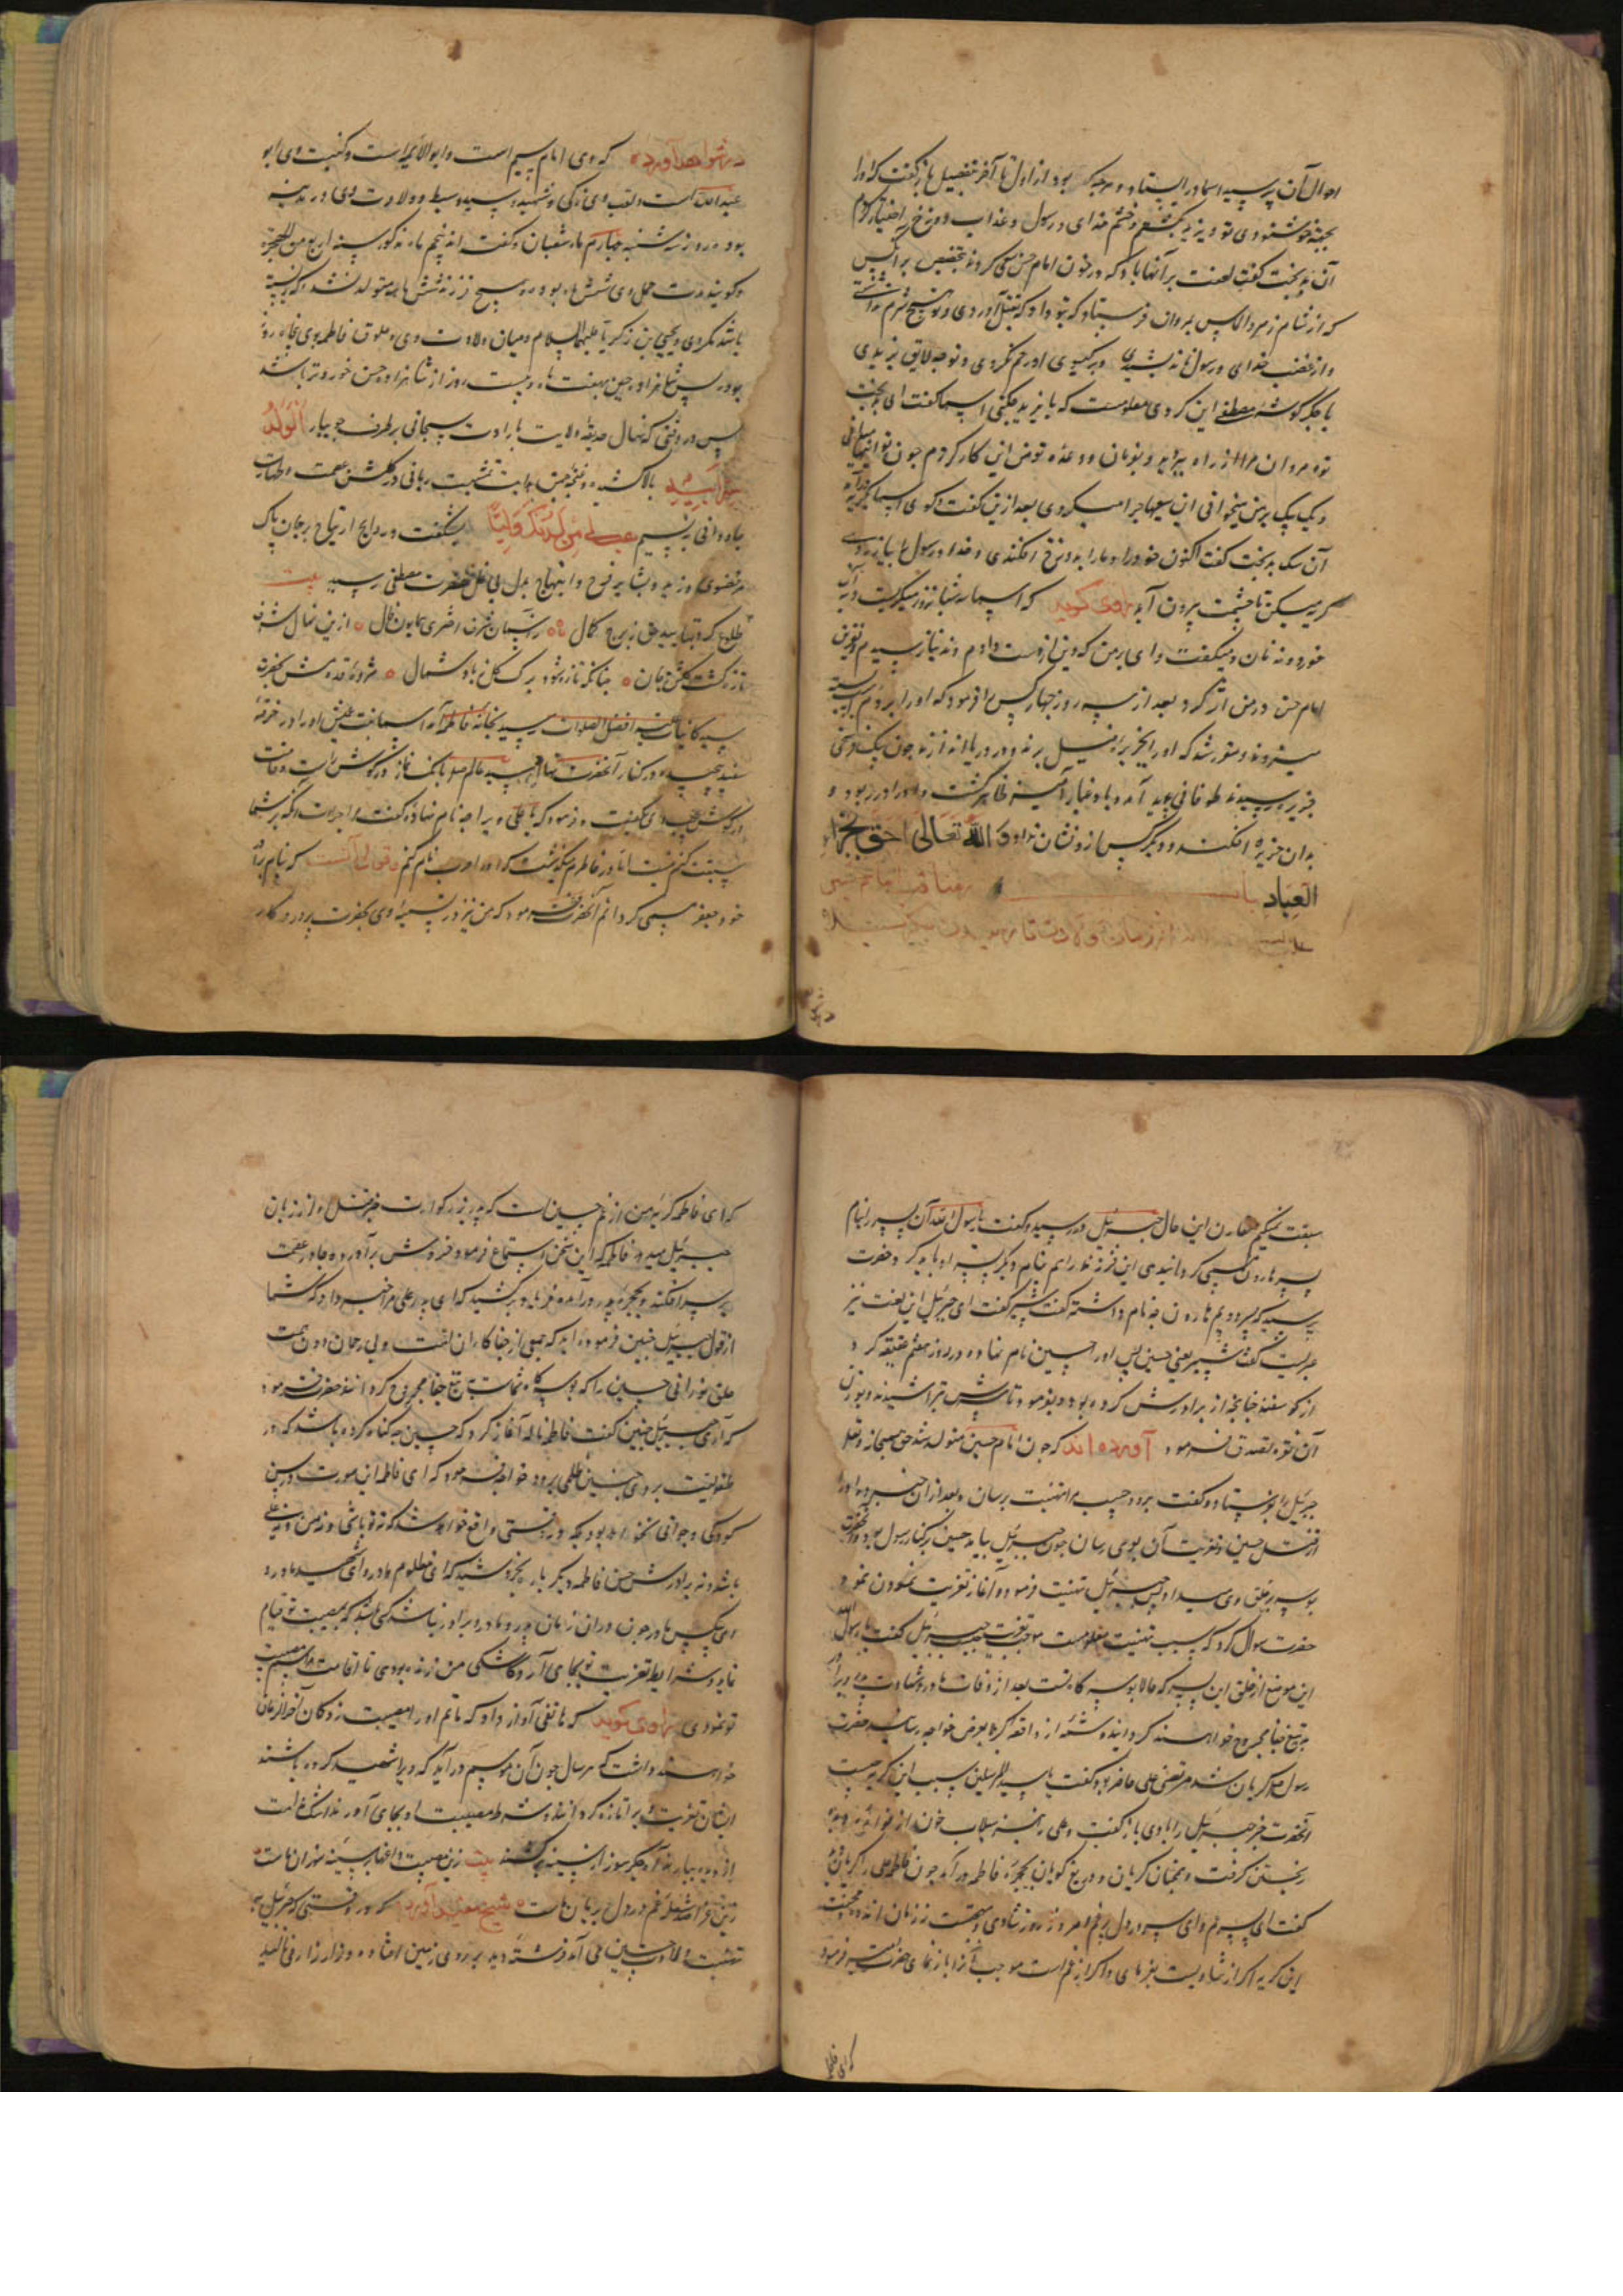 احوال آن پرسید اسما در ایستاد و هرچه بود از اول تا آخر بتفصیل باز گفت که او را
بجهة خوشنودی تو و یزید کشتم و خشم خدای و رسول و عذاب دوزخ اختیار کردم
آن بدبخت گفت لعنت بر آنها باد که در خون امام حسن سعی کردند بتخصیص بر آنکس
که از شام زهر و الماس بمروان فرستاد که بتو داد که بقتل آوردی و تو هیچ شرم نداشتی
و از غضب خدای و رسول نه اندیشیدی و بر کسی او رحم نکردی و تو چه لایق یزیدی
با جگر گوشه مصطفی این کردی معلومست که با یزید چکنی اسما گفت ای بدبخت
تو و مروان مرا از راه ببردید و بفرمان و وعده تو من این کار کردم چون تو
آن سگ بدبخت گفت اکنون خود را و ما را بدوزخ افکندی و خدا و رسول
گریه میکن تا چشمت بیرون آید راوی گوید که اسما سه شبانروز میگریست و
خورد و نه نان و میگفت وای بر من که دین از دست دادم و بدنیا نرسیدم و نفرین
امام حسن در من اثر کرد بعد از سه روز چهار کس را فرمود که او را
جزیره رسیدند طوفانی پدید آمد و باد و غبار آمیخته ظاهر گشت و او را در ربود و
بدان جزیره افکند و دیگر کس ازو نشان نداد والله تعالی احق بجزاء
العباد باب در مناقب امام حسین
علیه السلام از زمان ولادت تا
در شواهد آورده که وی امام سیم است و ابو الائمه است و کنیت وی ابو
عبدالله است و لقب وی زکی و شهید و سید و سبط و ولادت وی در مدینه
بود در روز سه شنبه چهارم ماه شعبان و گفته اند پنجم ماه مذکور سنه اربع من الهجرة
و گویند مدت حمل وی شش ماه بود و هیچ فرزند شش ماهه متولد نشد که زیسته
باشد مگر وی و یحیی بن زکریا علیهما السلام و میان ولادت وی و علوق فاطمه بوی پنجاه روز
بود پس شاهزاده حسین بهفت ماه و بیست روز از شاهزاده حسن خوردتر باشد
پس در وقتی که نهال حدیقه ولایت بارادت سبحانی بر طرف جویبار الولد
سر ابیه بالا کشید و غنچه چمن هدایت بمشیت ربانی در گلشن عصمت و طهارت
جاودانی به نسیم هب لی من لدنک ولیا بشگفت و روایح ارتیاح بر جان پاک
مرتضوی وزید و بشایر فرح و ابتهاج بدل بی غل حضرت مصطفی رسید بیت
طلوع کرد بتایید حق ز برج کمال بر آسمان شرف اختری همایون فال از این نهال شرف
تازه گشت گلشن جان چنانکه تازه شود برگ گل ز باد شمال مژده قدومش بحضرت
سید کاینات علیه افضل الصلوات رسید بخانه فاطمه آمد اسما بنت عمیس او را در خرقه
سفید پیچیده در کنار آنحضرت نهاد سید عالم صلعم بانگ نماز در گوش راست و قامت
در گوش چپ وی گفت و فرمود که یا علی ویرا چه نام نهاده گفت مرا چه جرات که بر شما
سبقت کنم اما در خاطرم میگذشت که او را حرب نام کنم و قولی آنست که بنام برادر
خود جعفر مسمی گردانم آنحضرت فرمود که من نیز در تسمیه وی بحضرت پروردگار
سبقت نمیکنم مقارن این حال جبرئیل در رسید و گفت یا رسول الله آن پسر را بنام
پسر هارون مسمی گردانیدی این فرزند را هم بنام دیگر پسر او باید کرد حضرت
پرسید که پسر دویم هارون چه نام داشته گفت شبیر گفت ای جبرئیل این لغت نیز
عربیست گفت شبیر یعنی حسین پس او را حسین نام نهاد و در روز هفتم عقیقه کرد
از گوسفند چنانچه از برادرش کرده بود و بفرمود تا سرش تراشیدند و بوزن
آن نقره تصدق فرمود آورده اند که چون امام حسین متولد شد حق سبحانه و تعالی
جبرئیل را بفرستاد و گفت برو و حبیب مرا تهنیت برسان و بعد از آن خبر ده او را
از قتل حسین و تعزیت آن بوی رسان چون جبرئیل بیامد حسین بر کنار رسول بود و آنحضرت
بوسه بر حلق وی میداد پس جبرئیل تهنیت فرمود و آغاز تعزیت نمودن نمود
حضرت سوال کرد که سبب تهنیت معلومست موجب تعزیت چیست جبرئیل گفت یا رسول الله
این موضع از حلق این پسر که حالا بوسه گاه تست بعد از وفات مادر و شهادت پدر و برادر
به تیغ جفا مجروح خواهند گردانید و شمه از واقعه کربلا بعرض خواجه رسانید حضرت
رسول صلعم گریان شد مرتضی علی حاضر بود گفت یا سید المرسلین سبب این گریه چیست
آنحضرت خبر جبرئیل را با وی باز گفت و علی نیز سیلاب خون از دیده
ریختن گرفت و همچنان گریان و دریغ گویان بحجره فاطمه در آمد چون فاطمه علی را گریان دید
گفت ای پسر عم وای سرور دل پر غم امروز روز شادی و بهجت است نه زمان اندوه و محنت
این گریه اگر از شادیست بفرمای و اگر از غم است موجب آنرا باز نمای حضرت امیر فرمود
که ای فاطمه
که ای فاطمه گریه من از غم حسین است که پدر بزرگوارت خبر قتل او از زبان
جبرئیل میدهد فاطمه که این سخن استماع فرمود خروش بر آورد و چادر عصمت
بر سر افکند و بحجره پدر در آمد و فریاد بر کشید که ای پدر علی مرا خبر داد که شما
از قول جبرئیل چنین فرموده اید که جمعی از جفاکاران امت و بی رحمان دون همت
حلق نورانی حسین را که بوسه گاه شماست به تیغ جفا مجروح گردانند حضرت فرمود
که آری جبرئیل چنین گفت فاطمه ناله آغاز کرد که حسین چه گناه کرده باشد که در
طفولیت بر وی چنین ظلمی برود خواجه فرمود که ای فاطمه این صورت در سن
کودکی و جوانی نخواهد بود بلکه در وقتی واقع خواهد شد که نه تو باشی و نه من و نه علی
باشد و نه برادرش حسن فاطمه دیگر باره بخروشید که ای مظلوم مادر وای شهید مادر و
ای بیکس مادر چون در آن زمان پدر و مادر و برادر نباشد که باشد که بمصیبت تو قیام
نماید و شرایط تعزیت تو بجای آرد و کاشکی من زنده بودمی تا اقامت مراسم مصیبت
تو نمودمی راوی گوید که هاتفی آواز داد که ماتم او را مصیبت زدگان آخر الزمان
خواهند داشت که هر سال چون آن موسم در آید که ویرا شهید کرده باشند
ایشان تعزیت ویرا تازه گردانند و شرط مصیبت او بجای آورند اشک ندامت
از دیده ببارند و آه جگر سوز از سینه بر کشند بیت زین مصیبت داغها بر سینه سوزان ماست
زین عزا صد شعله غم در دل بریان ماست شیخ مفید آورده که در وقتی که جبرئیل به
تهنیت ولادت حسین می آمد فرشته دید بر روی زمین افتاده و زار زار می نالید